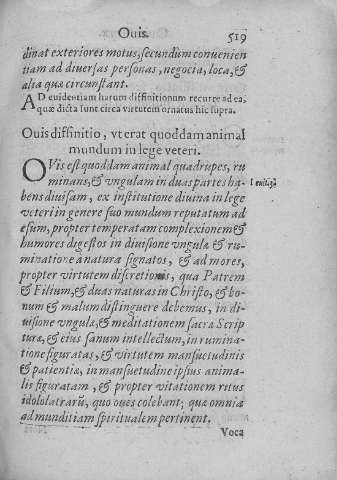 Ouis. 519
dinat exteriores motus, secundùm conuenien
tiam ad diuersas personas, negocia, loca, &
alia quæ circunstant.
AD euidentiam harum diffinitionum recurre ad ea,
quæ dicta sunt circa virtutem ornatus hic supra.
Ouis diffinitio, vt erat quoddam animal
mundum in lege veteri.
OVis est quoddam animal quadrupes, ru
minans, & vngulam in duas partes ha-
bens diuisam, ex institutione diuina in lege
veteri in genere suo mundum reputatum ad
esum, propter temperatam complexionem &
humores digestos in diuisione vngulæ & ru-
minatione à natura signatos, & ad mores,
propter virtutem discretionis, qua Patrem
& Filium, & duas naturas in Christo, & bo-
num & malum distinguere debemus, in di-
uisione vngulæ, & meditationem sacræ Scrip
turæ, & eius sanum intellectum, in rumina-
tione figuratas, & virtutem mansuetudinis
& patientiæ, in mansuetudine ipsius anima-
lis figuratam, & propter vitationem ritus
idololatrarũ, quo oues colebant; quæ omnia
ad munditiam spiritualem pertinent.
Voca